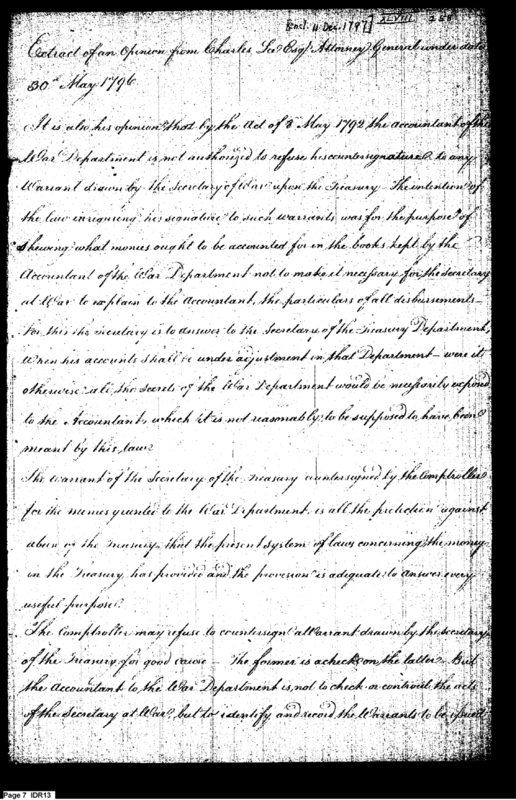 [Encl. 11 Dec. 1797] XLVIII 258
Extract of an Opinion from Charles Lee Esqr. Attorney General under date
30th May 1796
It is also his opinion that by the Act of 8 May 1792 the accountant of the
War Department is not authorized to refuse his countersignature to any
Warrant drawn by the Secretary of War upon the Treasury — The intention of
the law in requiring his signature to such warrants was for the purpose of
shewing what monies ought to be accounted for in the books kept by the
Accountant of the War Department not to make it necessary for the Secretary
at War to explain to the Accountant, the particulars of all disbursements —
For this the Secretary is to answer to the Secretary of the Treasury Department,
When his accounts shall be under adjustment in that Department — were it
otherwise all the Secrets of the War Department would be necessarily exposed
to the Accountant, which it is not reasonably to be supposed to have been
meant by this law.
The warrant of the Secretary of the Treasury countersigned by the Comptroller
for the monies granted to the War Department is all the protection against
abuse of the Treasury, that the present system of laws concerning the money
in the Treasury, has provided and the provision is adequate to answer every
useful purpose.
The Comptroller may refuse to countersign a Warrant drawn by the Secretary
of the Treasury for good cause — The former is a check on the latter. But
the Accountant to the War Department is not to check or controul the acts
of the Secretary at War, but to identify and record the Warrants to be issued
Page 7 IDR13